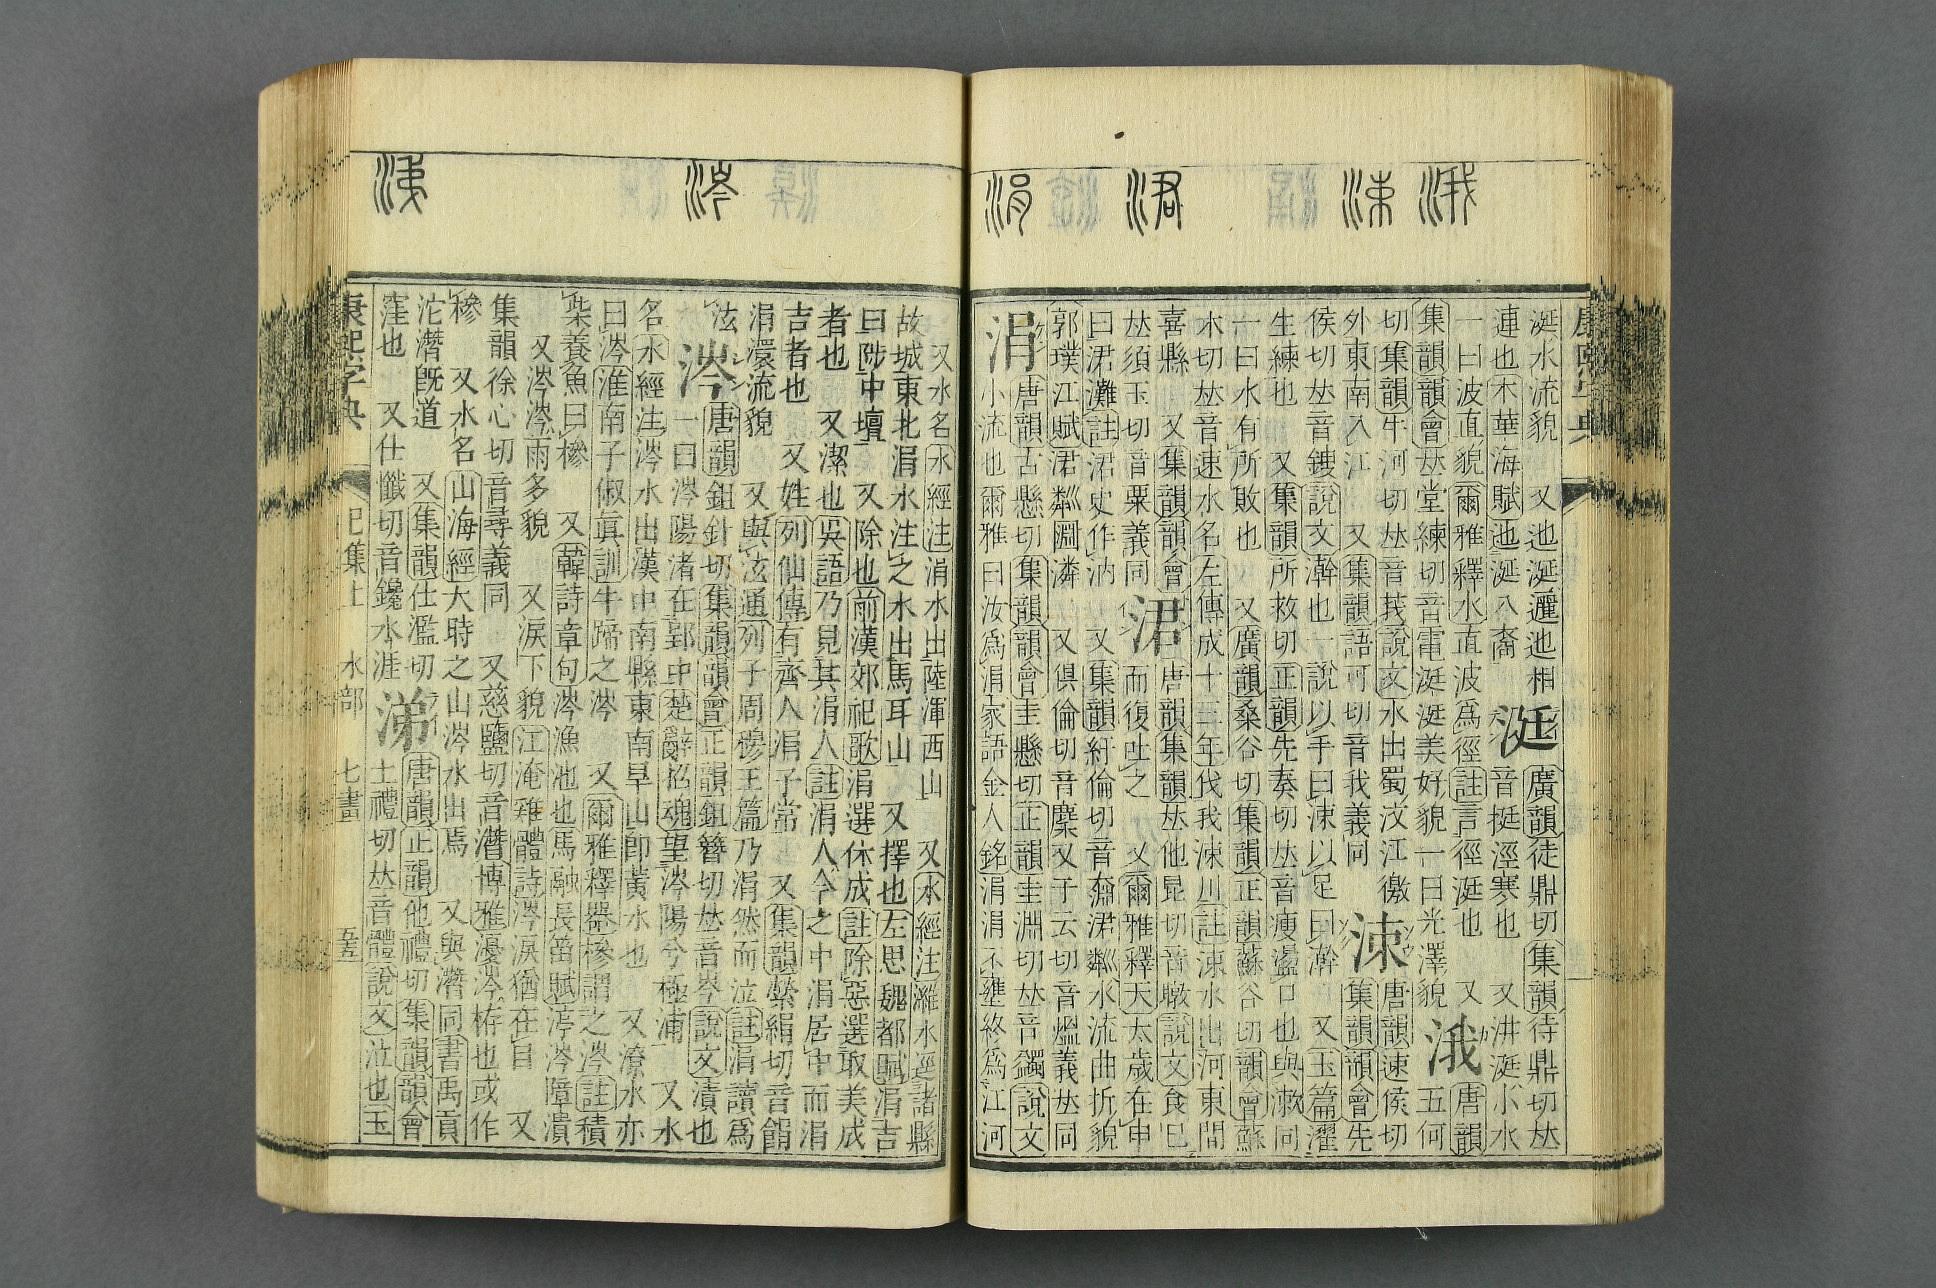 涐 涑 涒 涓
康熙字典
涎水流貌 又迆涎邐迆相 涏 廣韻徒鼎切集韻待鼎切𠀤
連也木華海賦迆涎八裔 音挺涇寒也 又汫涏小水
一曰波直貌爾雅釋水直波爲徑註言徑涏也 又 涐 唐韻
集韻韻會𠀤堂練切音電涏涏美好貌一曰光澤貌 五何
切集韻牛河切𠀤音莪說文水出蜀汶江徼 涑 唐韻速侯切
外東南入江 又集韻語可切音我義同 集韻韻會先
侯切𠀤音鏉說文澣也一說以手曰涑以足曰澣 又玉篇濯
生練也 又集韻所救切正韻先奏切𠀤音瘦盪口也與漱同
一曰水有所敗也 又廣韻桑谷切集韻正韻蘇谷切韻會蘇
木切𠀤音速水名左傳成十三年伐我涑川註涑水出河東聞
喜縣 又集韻韻會 涒 唐韻集韻𠀤他昆切音暾說文食已
𠀤須玉切音粟義同 而復吐之 又爾雅釋天太歲在申
曰涒灘註涒史作汭 又集韻紆倫切音奫涒粼水流曲折貌
郭璞江賦涒粼圌潾 又俱倫切音麇又于云切音熅義𠀤同
涓 唐韻古懸切集韻韻會圭懸切正韻圭淵切𠀤音鐲說文
小流也爾雅曰汝爲涓家語金人銘涓涓不壅終爲江河
涔 涕
又水名水經注涓水出陸渾西山 又水經注濰水逕諸縣
故城東北涓水注之水出馬耳山 又擇也左思魏都賦涓吉
曰陟中壇 又除也前漢郊祀歌涓選休成註除惡選取美成
者也 又潔也吳語乃見其涓人註涓人今之中涓居中而涓
吉者也 又姓列仙傳有齊人涓子常 又集韻縈絹切音餶
涓澴流貌 又與泫通列子周穆王篇乃涓然而泣註涓讀爲
泫 涔 唐韻鉏針切集韻韻會正韻鉏簪切𠀤音岑說文漬也
一曰涔陽渚在郢中楚辭招魂望涔陽兮極浦 又水
名水經注涔水出漢中南縣東南旱山卽黃水也 又潦水亦
曰涔淮南子俶眞訓牛蹄之涔 又爾雅釋器槮謂之涔註積
柴養魚曰槮 又韓詩章句涔漁池也馬融長笛賦渟涔障潰
又涔涔雨多貌 又淚下貌江淹雜體詩涔淚猶在目 又
集韻徐心切音尋義同 又慈鹽切音潛博雅瀀涔栫也或作
槮 又水名山海經大時之山涔水出焉 又與潛同書禹貢
沱潛旣道 又集韻仕濫切 涕 唐韻正韻他禮切集韻韻會
窪也 又仕懺切音鑱水涯 土禮切𠀤音體說文泣也玉
康熙字典 巳集上 水部 七畫 五五